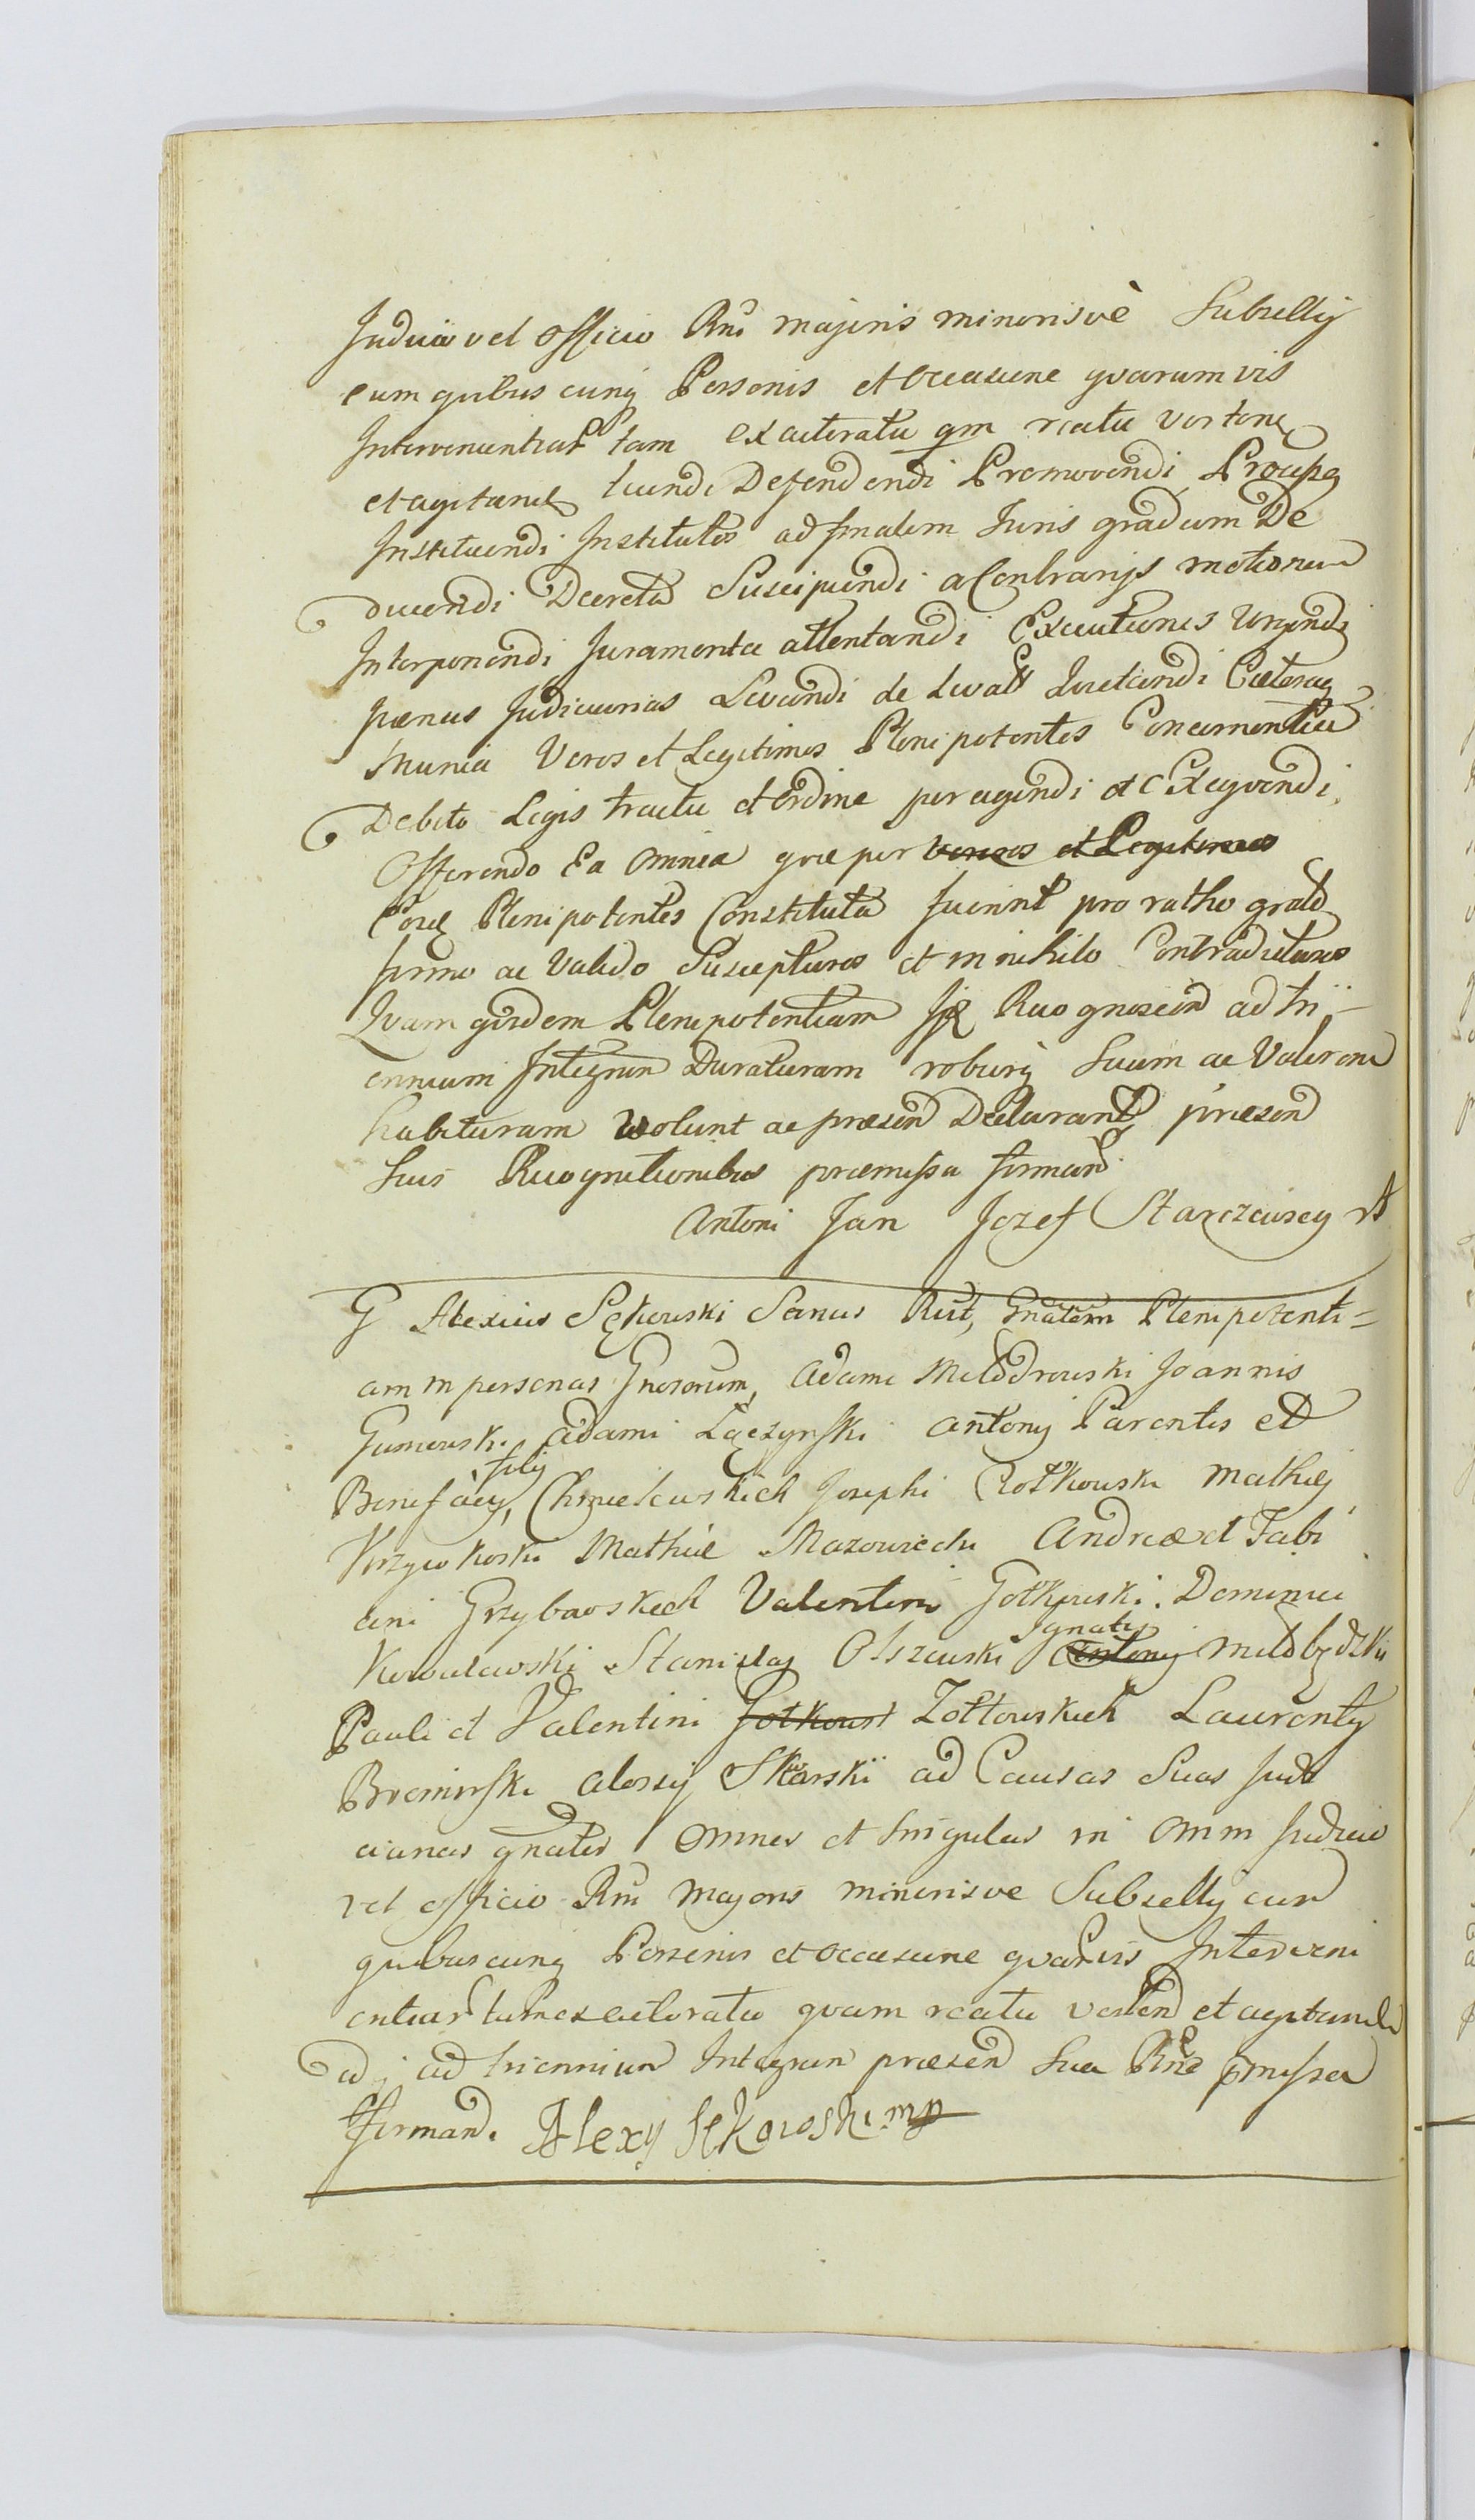 Judicio vel officio Rni majoris minorisvè Subsellij
cum quibuscunq Personis et occasione qvarumvis
Intervenientiar tam ex actoratu qm reatu verten
et agitand tuendi Defendendi Promovendi Processq
Instituendi Institutos ad finalem Juris gradum De
ducendi Decreta Suscipiendi a Contrarijs motionem
Interponendi Juramenta attentandi Executiones Urgendi
pænas Judiciarias Levandi de levatis Qvietandi Cæteraq
Munia Veros et Legitimos Plenipotentes Concernentia
Debito Legis tractu et ordine peragendi et Exeqvendi
Offerendo Ea omnia qvæ per veros et Legitimos
Plenipotentes Constituta fuerint pro ratho grato
firmo ac Valido Suscepturos et in nihilo Contradicturos
Qvam qvidem Plenipotentiam Recognoscen ad tri-
ennium Integrum Duraturam roburq Suum ac Valorem
habituram Wolunt ac præsen Declarant præsen
Suis Recognitionibus præmissa firmand
Antoni Jan Jozef Starczewscy
G Alexius Sękowski Sanus Rūt, Gnalem Plenipotenti=
am in personas Gnosorum, Adami Młodrowski Joannis
Gumowski Adami Łączynski Antonij Parentis et
filij
Bonifacij, Chrzelewskich Josephi Rotkowski Mathiæ
Krzywkoski Mathiæ Mazowiecki Andreæ et Fabi
ani Grzybowskich Valentini Gołkowski Dominici
Ignatij
Kowalewski Stanislaj Olszewski Antonij Miłobędzki
Pauli et Valentini Gołkowsk Zołtowskich Laurentij
Bromirski Alexij Skarski ad Causas Suas Judi
ciarias gnales Omnes et Singulas in Omni Judicio
vel officio Rni Majoris minorisve Subsellij cum
quibuscunq Personis et occasione qvarvis Interveni
entiar tam ex actoratu qvam reatu verten et agitand
ad triennium Integrum præsen Sua Rne pmissa
firmand. Alexy Sękowski mp